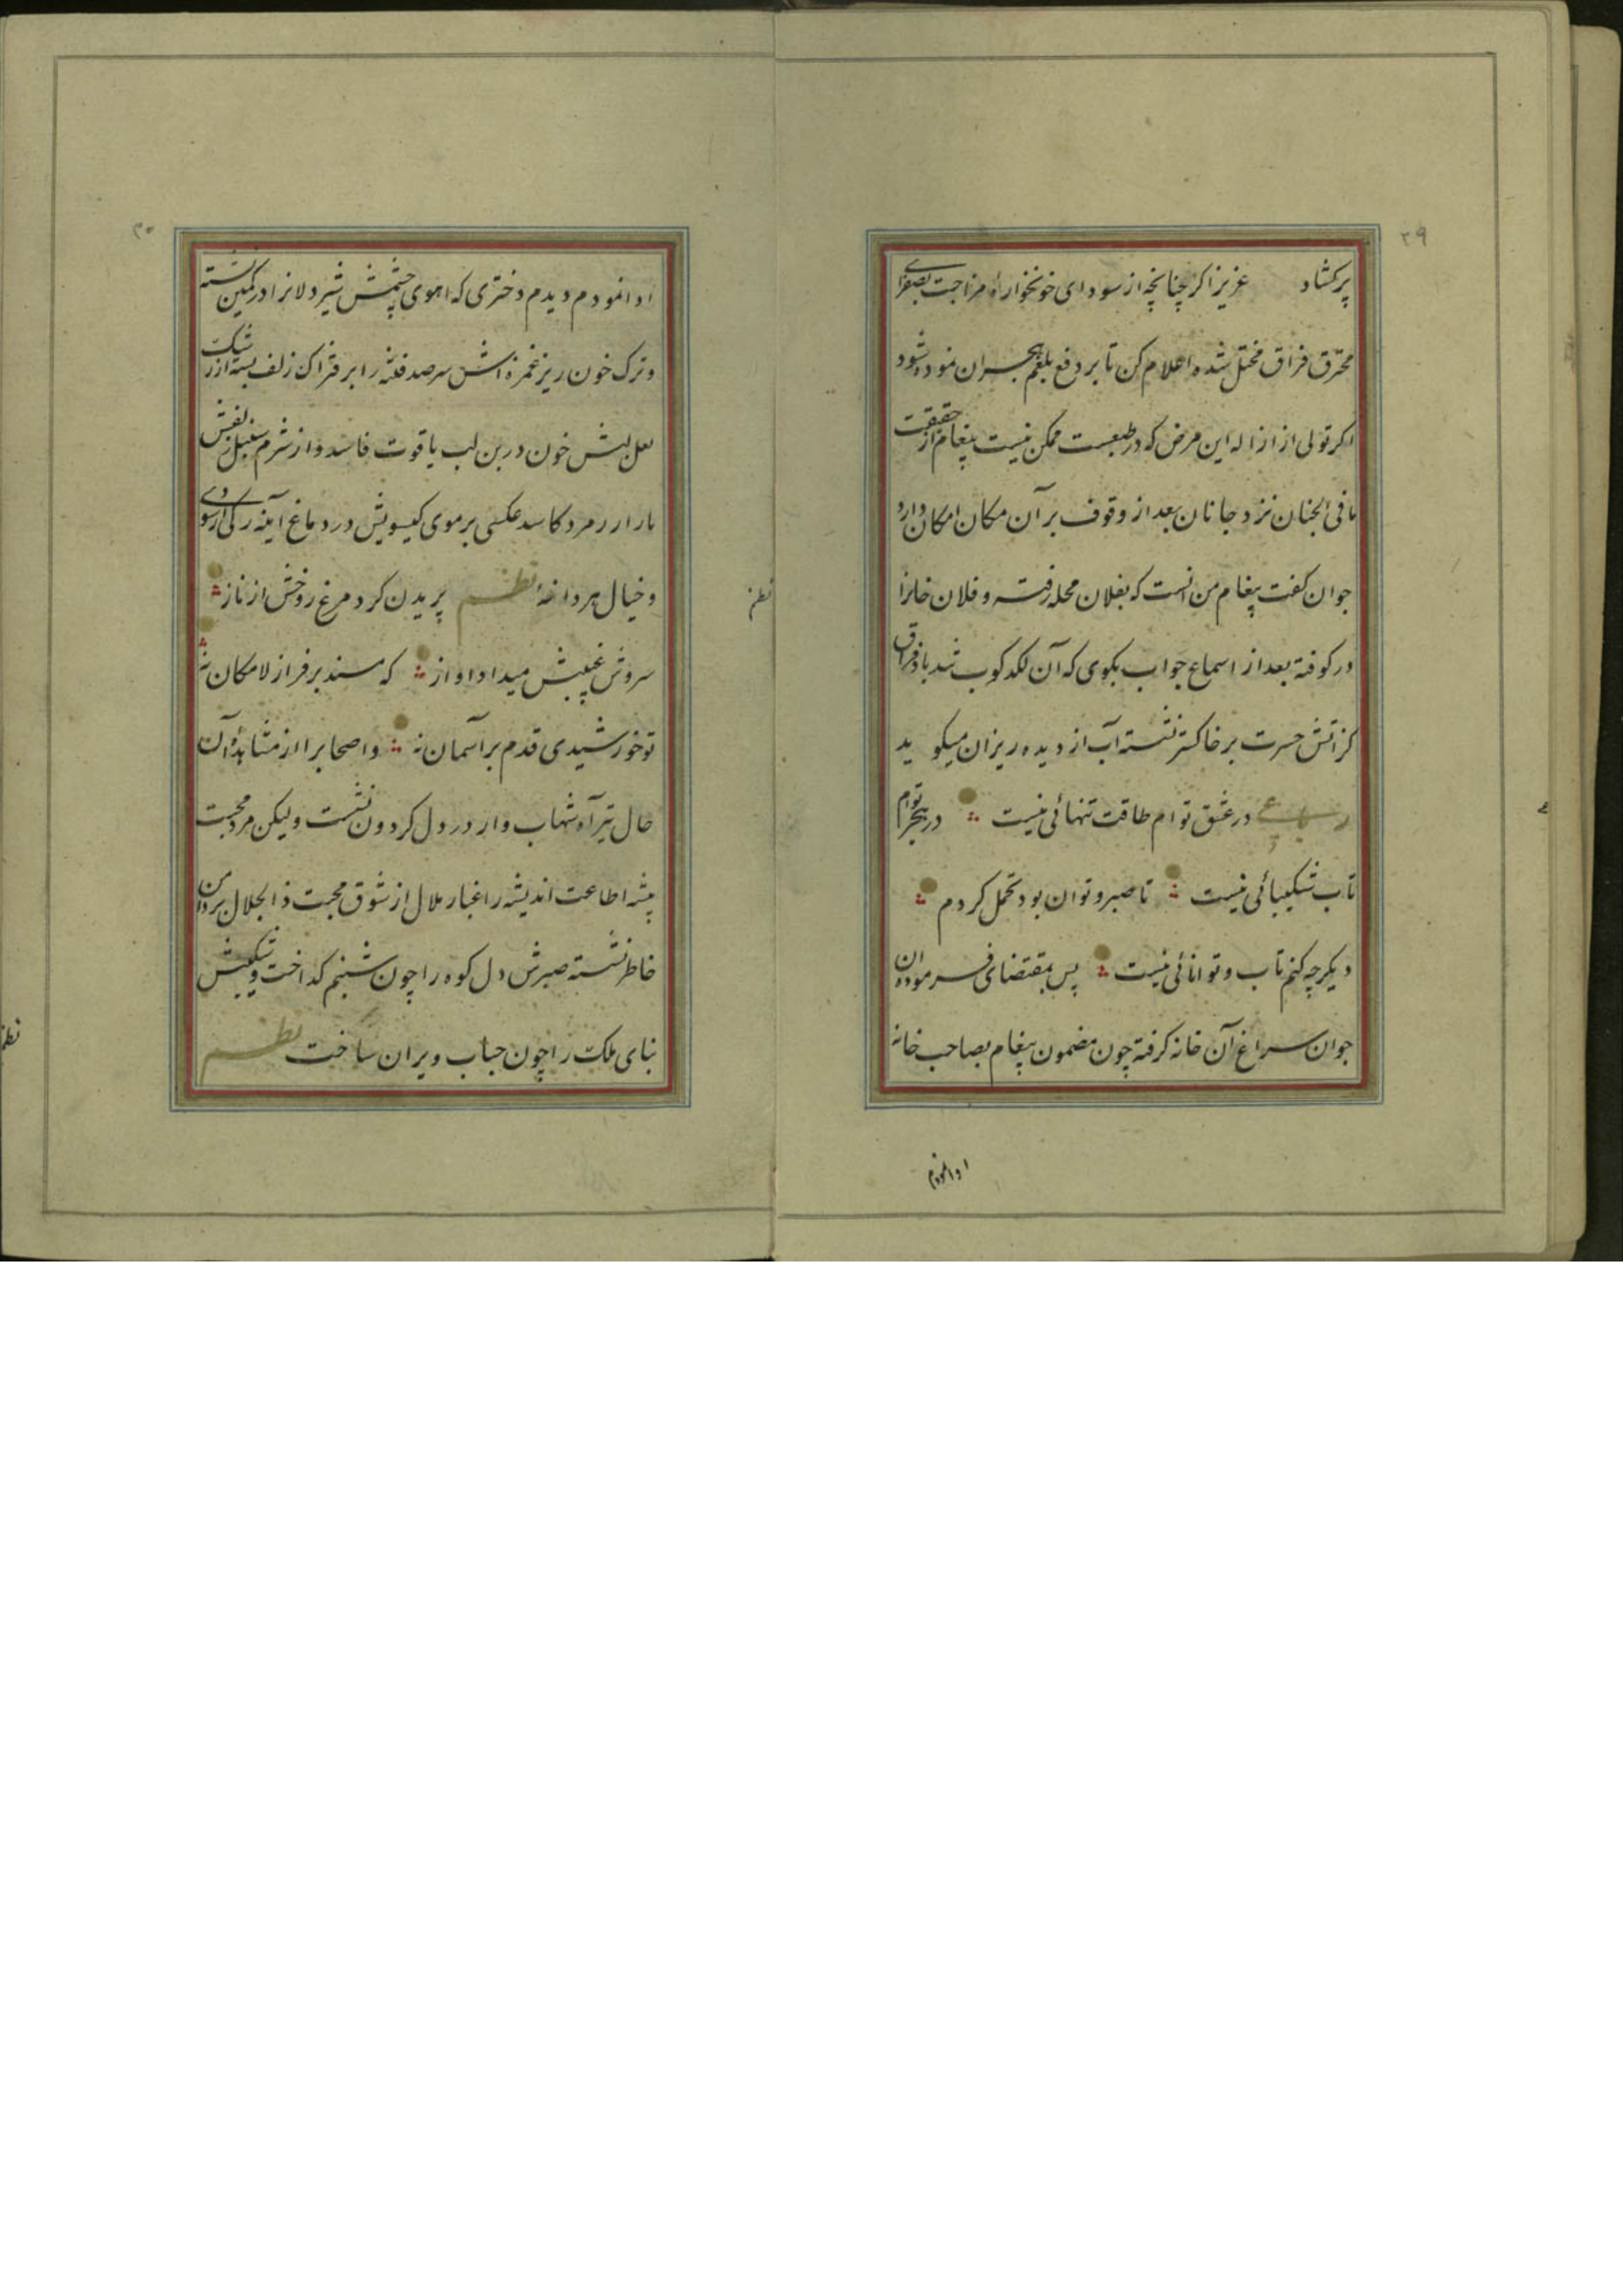 ۲۹
پرکشاد عزیزا کر چنانچه از سودای خونخواراه مزاجت بصفرای
محترق فراق مختل شده اعلام کن تا بر دفع بلغم هجران نموده شود
اکر تولی از ازاله این مرض که در طبعست ممکن نیست پیغام از حقیقت
ما فی الجنان نزد جانان بعد از وقوف بر آن مکان امکان دارد
جوان کفت پیغام من انست که بفلان محله رفته و فلان خانرا
در کوفته بعد از اسماع جواب بکوی که آن لکد کوب شد باد فراق
کز آتش حسرت بر خاکستر نشسته آب از دیده ریزان میکوید
رباعی در عشق توام طاقت تنهائی نیست در هجر توام
تاب شکیبائی نیست تا صبر و توان بود تحمل کردم
دیکر چه کنم تاب و توانائی نیست پس بمقتضای فرموده ان
جوان سراغ آن خانه کرفته چون مضمون پیغام بصاحب خانه
ادا نمودم
۳۰
ادا نمودم دیدم دختری که اهوی چشمش شیردلانرا در کمین نشسته
و ترک خون ریز غمزه اش سر صد فتنه را بر فتراک زلف بسته از رشک
لعل لبش خون در بن لب یاقوت فاسد و از شرم سنبل بنفش
بازار زمرد کاسد عکسی بر موی کیسویش در دماغ آینه رکی از سودای
و خیال هر دانهٔ نظم پریدن کرد مرغ روخش از ناز
سروش غیبیش میداد اواز که مسند بر فراز لامکان نه
تو خورشیدی قدم بر آسمان نه و اصحابرا از مشاهدهٔ آن
حال تیر آه شهاب وار در دل کردون نشست ولیکن مرد محبت
پیشه اطاعت اندیشه را غبار ملال از شوق محبت ذالجلال بر دامن
خاطر نشسته صبرش دل کوه را چون شبنم کداخت و شکیبش
بنای ملک را چون حباب ویران ساخت نظم
نظم
نظم